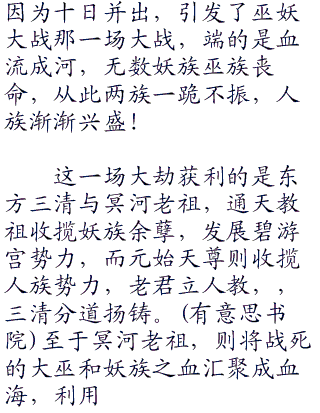 因为十日并出，引发了巫妖
大战那一场大战，端的是血
流成河，无数妖族巫族丧
命，从此两族一跪不振，人
族渐渐兴盛！
这一场大劫获利的是东
方三清与冥河老祖，通天教
祖收揽妖族余孽，发展碧游
宫势力，而元始天尊则收揽
人族势力，老君立人教，，
三清分道扬铸。（有意思书
院）至于冥河老祖，则将战死
的大巫和妖族之血汇聚成血
海，利用